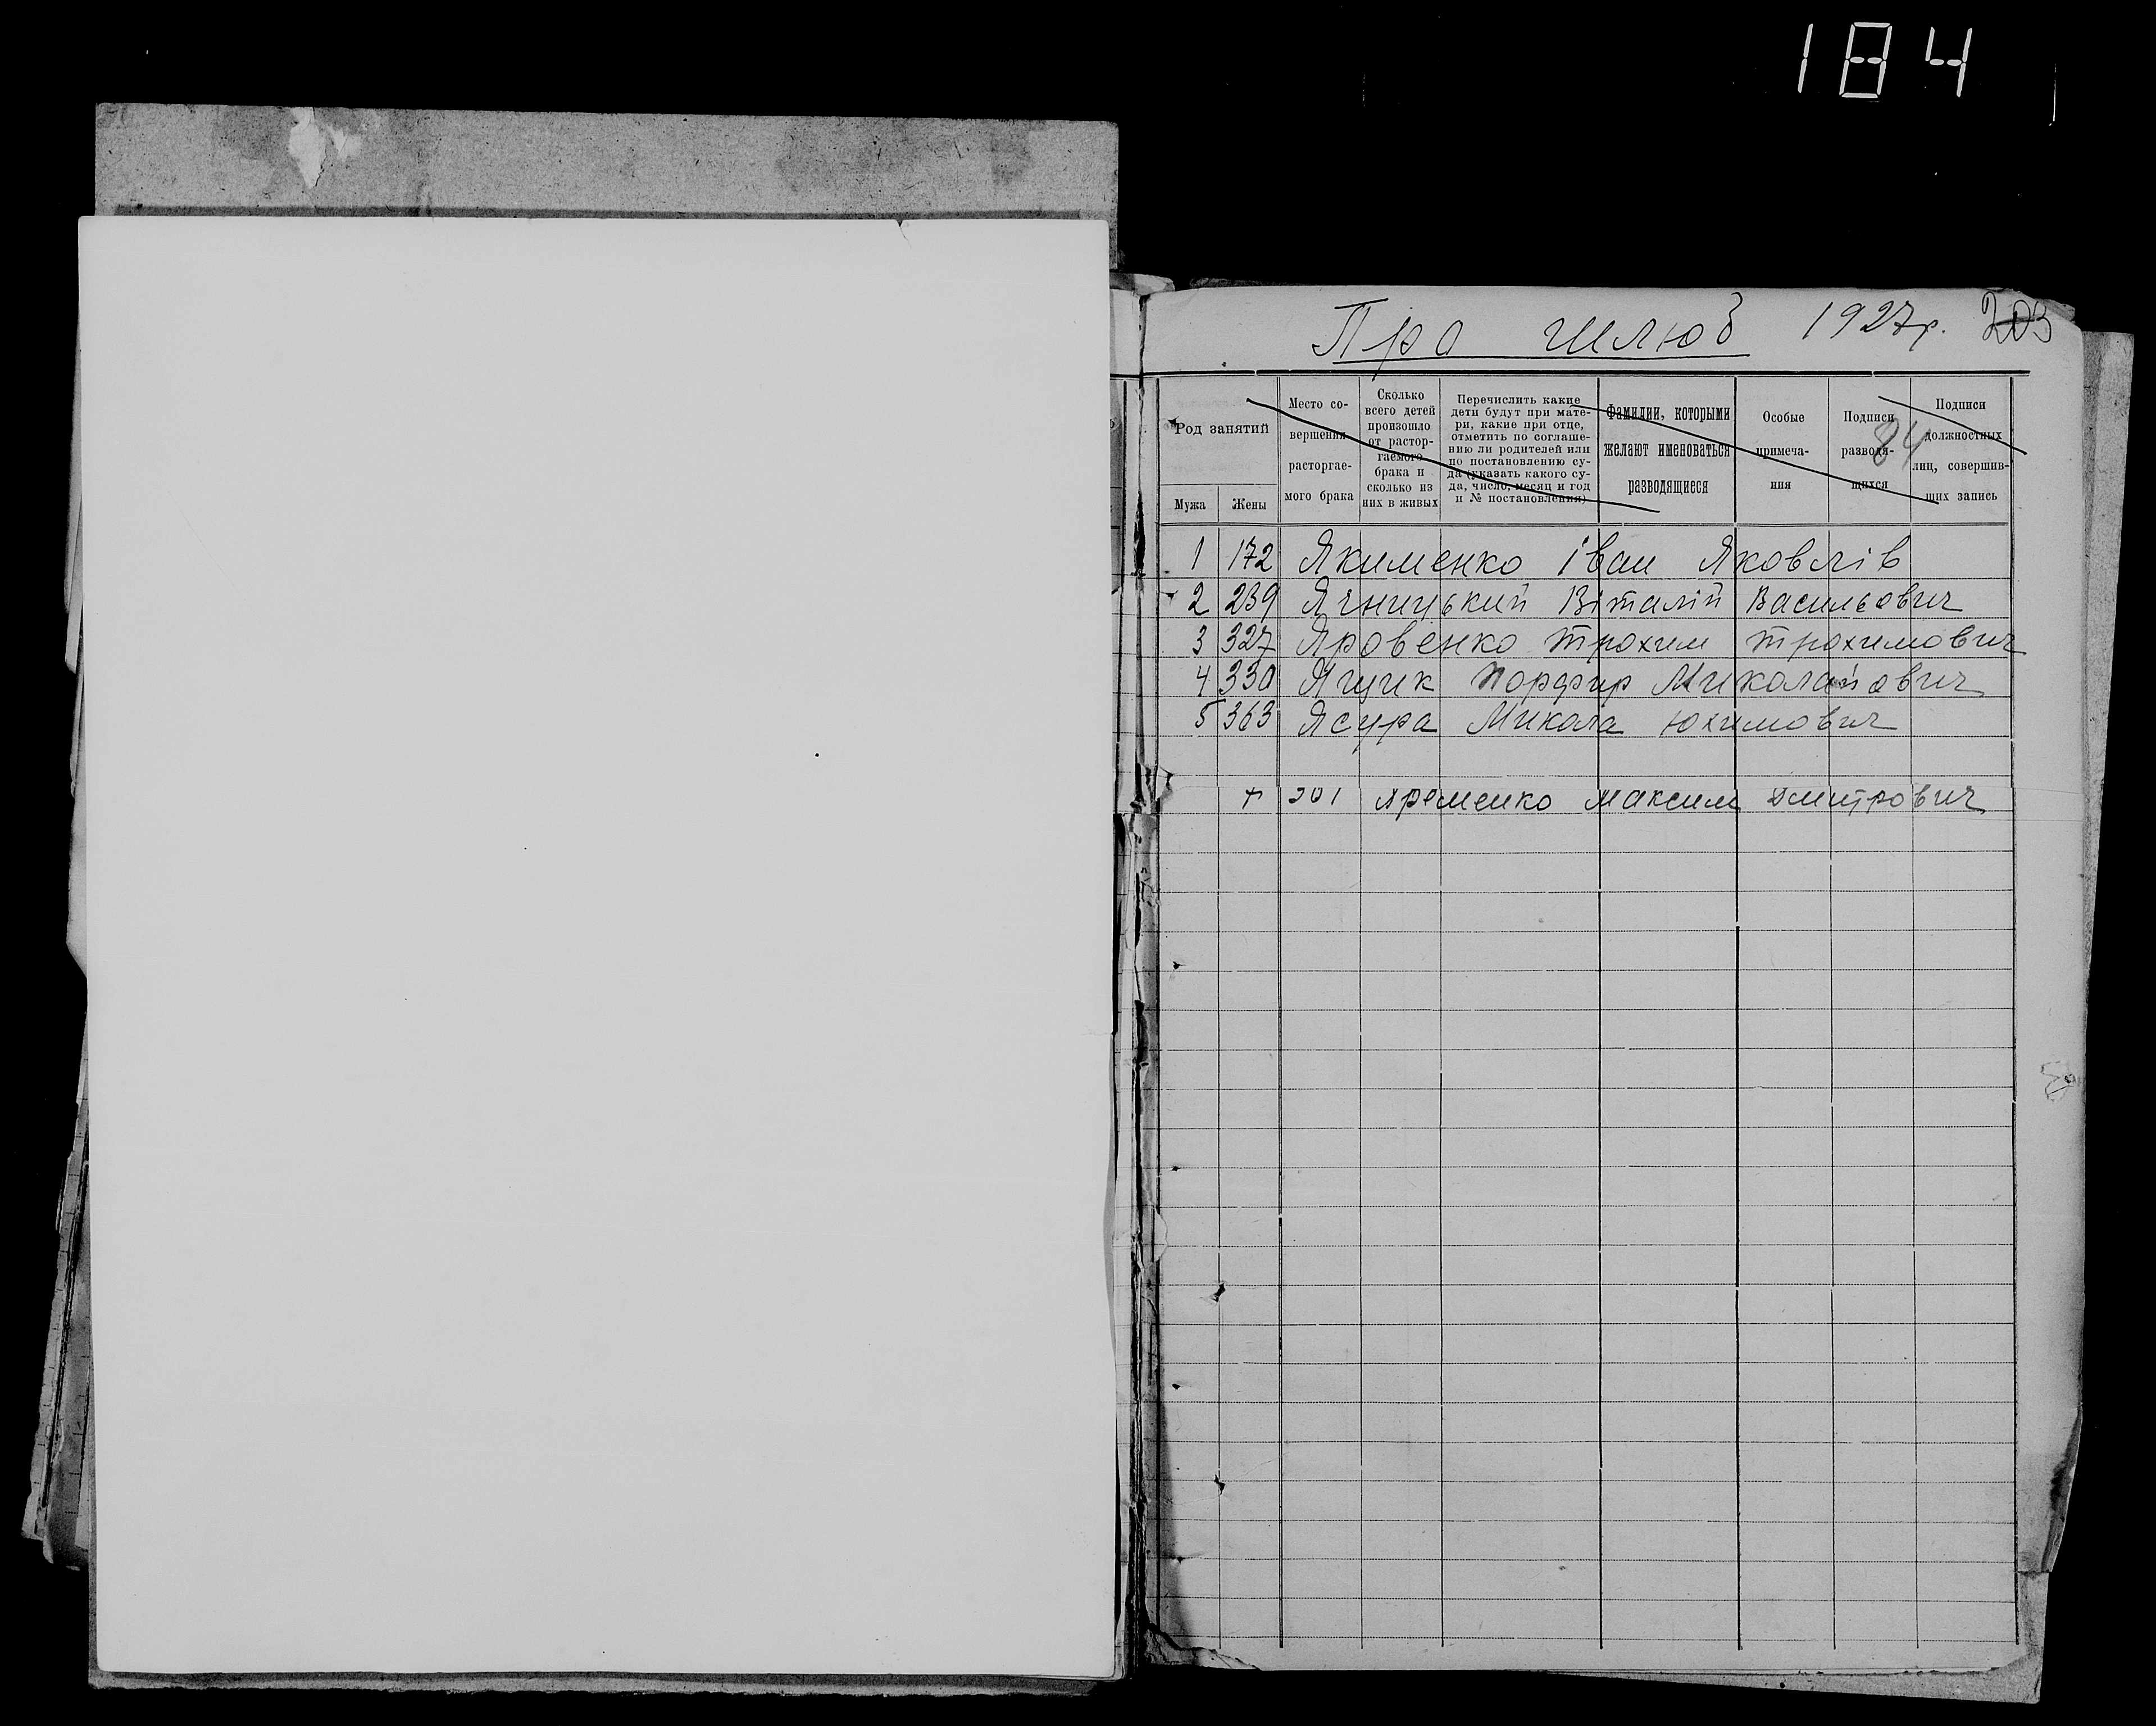 184
Про шлюб 1927р. 203
Род занятий
Мужа
Жены
Место со-
вершения
расторгае-
мого брака
Сколько
всего детей
произошло
от растор-
гаемого
брака и
сколько из
них в живых
Перечислить какие
дети будут при мате-
ри, какие при отце,
отметить по соглаше-
нию ли родителей или
по постановлению су-
да (указать какого су-
да, число, месяц и год
и № постановления)
Фамилии, которыми
желают именоваться
разводящиеся
Особые
примеча-
ния
Подписи
разводя-
щихся
84
Подписи
должностных
лиц, совершив-
щих запись
1 172 Якименко Іван Яковлів
2 239 Ячницький Віталій Васильович
3 327 Яровенко Трохим Трохимович
4 330 Ящик Порфир Миколайович
5 363 Ясура Микола Юхимович
+ 201 Яременко Максим Дмитрович